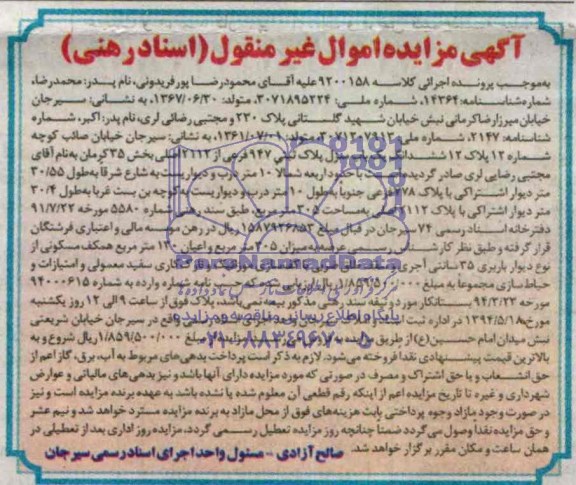 آگهی مزایده اموال غیر منقول (اسناد رهنی)
به‌موجب پرونده اجرائی کلاسه ۹۲۰۰۱۵۸ علیه آقای محمودرضا پورفریدونی، نام پدر: محمدرضا،
شماره شناسنامه: ۱۴۳۶۴، شماره ملی: ۳۰۷۱۸۹۵۲۲۴، متولد: ۱۳۶۷/۰۶/۲۰، به نشانی: سیرجان
خیابان میرزارضا کرمانی نبش خیابان شهید گلستانی پلاک ۲۲۰ و مجتبی رضائی لری، نام پدر: اکبر، شماره
شناسنامه: ۲۱۴۷، شماره ملی: متولد: ۱۳۶۱/۰۷/۰۱، به نشانی: سیرجان خیابان صائب کوچه
شماره ۱۲ پلاک ۱۲ پلاک ثبتی ۹۴۷ فرعی از ۲۱۱۲ اصلی بخش ۳۵ کرمان به نام آقای
مجتبی رضایی لری صادر گردیده است با حدود اربعه شمالا ۱۰ متر درب و دیواریست به شارع شرقا به‌طول ۳۰/۵۵
متر دیوار اشتراکی با پلاک ۲۷۸ فرعی جنوبا به‌طول ۱۰ متر درب و دیواریست به کوچه بن بست غربا به‌طول ۳۰/۴
متر دیوار اشتراکی با پلاک ۲۱۱۲ به‌مساحت ۳۰۵ متر مربع، طبق سند رهنی شماره ۵۵۸۰ مورخه ۹۱/۷/۲۲
دفترخانه اسناد رسمی ۷۴ سیرجان در قبال مبلغ ۱۵۸۷۹۲۶۸۵۳ ریال در رهن موسسه مالی و اعتباری فرشتگان
قرار گرفته و طبق نظر کارشناس رسمی عرصه به میزان ۳۰۵ متر مربع و اعیان ۱۳۰ متر مربع همکف مسکونی از
نوع دیوار باربری ۳۵ سانتی آجری و سقف سفید معمولی و امتیازات و
حیاط‌سازی مجموعا به مبلغ ۱/۸۵۹/۵۰۰/۰۰۰ ریال ارزیابی نامه شماره وارده به شماره ۹۴۰۰۰۶۱۵
مورخه ۹۴/۳/۲۲ بستانکار مورد وثیقه سند رهنی مذکور بیمه نمی‌باشد، پلاک فوق از ساعت ۹ الی ۱۲ روز یکشنبه
مورخه ۱۳۹۴/۵/۱۸ در اداره ثبت اسناد و املاک سیرجان واحد اجرای اسناد رسمی واقع در سیرجان خیابان شریعتی
نبش میدان امام حسین(ع) از طریق مزایده به فروش مزایده از مبلغ ۱/۸۵۹/۵۰۰/۰۰۰ ریال شروع و به
بالاترین قیمت پیشنهادی نقدا فروخته می‌شود. لازم به ذکر است پرداخت بدهی‌های مربوط به آب، برق، گاز اعم از
حق انشعاب و یا حق اشتراک و مصرف در صورتی که مورد مزایده دارای آنها باشد و نیز بدهی‌های مالیاتی و عوارض
شهرداری و غیره تا تاریخ مزایده اعم از اینکه رقم قطعی آن معلوم شده یا نشده باشد به عهده برنده مزایده است و نیز
در صورت وجود مازاد وجوه پرداختی بابت هزینه‌های فوق از محل مازاد به برنده مزایده مسترد خواهد شد و نیم عشر
و حق مزایده نقدا وصول می‌گردد ضمنا چنانچه روز مزایده تعطیل رسمی گردد، مزایده روز اداری بعد از تعطیلی در
همان ساعت و مکان مقرر برگزار خواهد شد.
صالح آزادی - مسئول واحد اجرای اسناد رسمی سیرجان
ParsNamadData
پایگاه اطلاع رسانی مناقصه و مزایده
۰۲۱-۸۸۳۴۹۶۷۰-۵